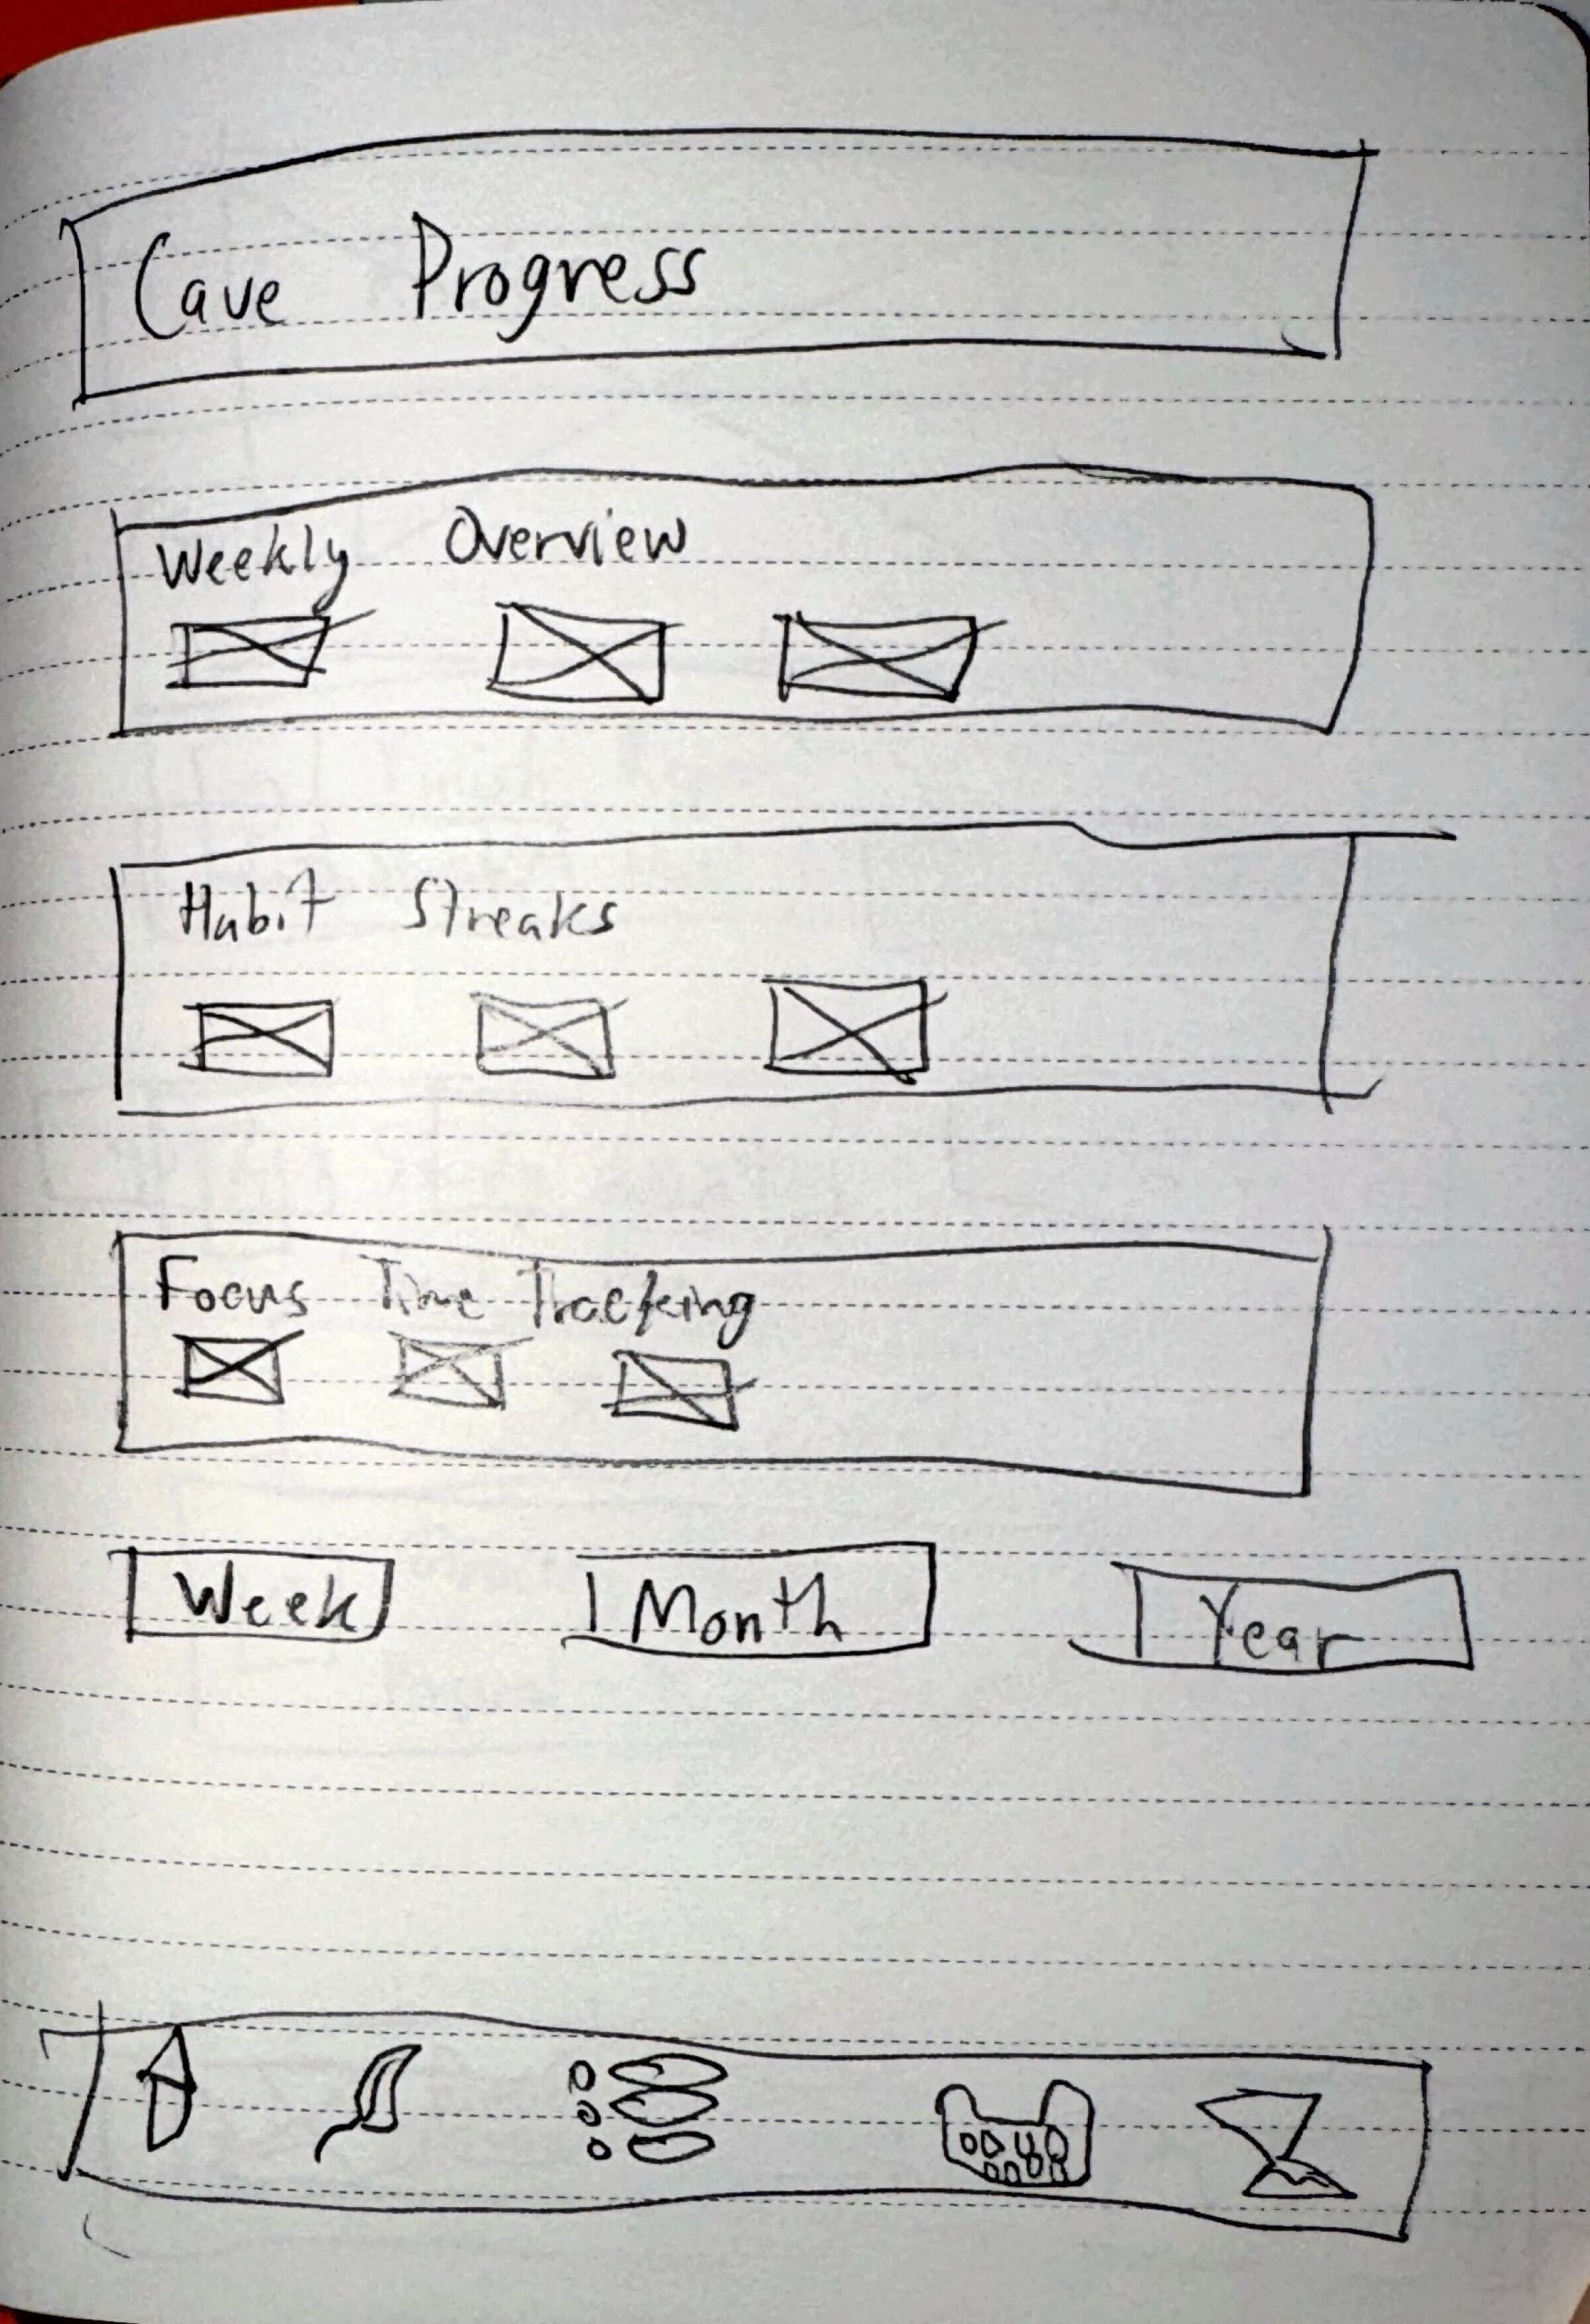 Cave Progress
Weekly Overview
Habit Streaks
Focus Time Tracking
Week Month Year